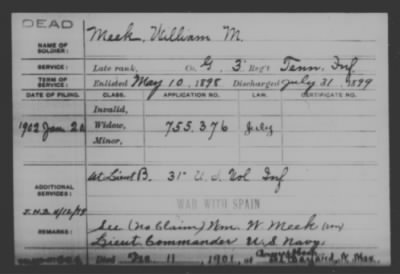 DEAD
NAME OF SOLDIER: Meek, William M.
SERVICE: Late rank, Co. G, 3 Reg't Tenn. Inf
TERM OF SERVICE: Enlisted May 10, 1898 Discharged July 31, 1899
DATE OF FILING. CLASS. APPLICATION NO. LAW. CERTIFICATE NO.
Invalid,
1902 Jan 20 Widow, 755.376 July
Minor,
ADDITIONAL SERVICES: 1st Lieut B. 31" U.S. Vol Inf
WAR WITH SPAIN
REMARKS: See (No Claim) Wm. W. Meek
Lieut Commander U.S. Navy.
Died 11, 1901, at